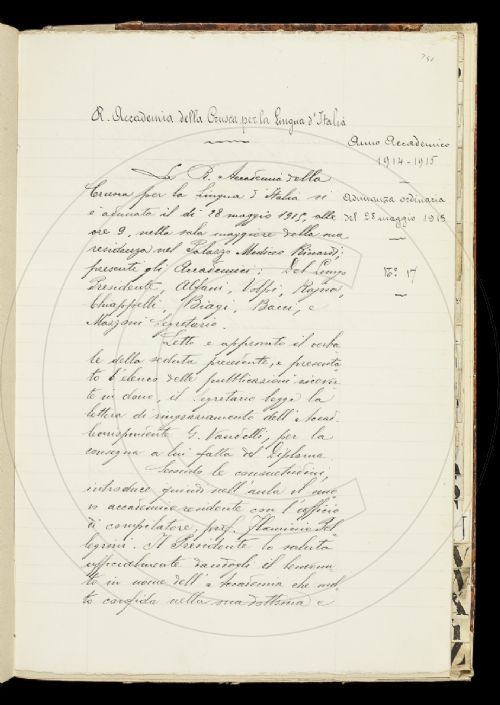 751
R. Accademia della Crusca per la Lingua d'Italia
Anno Accademico
1914-1915
Adunanza ordinaria
del 28 maggio 1915
N.° 17
La R. Accademia della
Crusca per la Lingua d'Italia si
è adunata il dì 28 maggio 1915, alle
ore 9, nella sala maggiore della sua
residenza nel Palazzo Mediceo Riccardi;
presenti gli Accademici: Del Lungo
Presidente, Alfani, Volpi, Rajna,
Chiappelli, Biagi, Bacci, e
Mazzoni Segretario.
Letto e approvato il verba
le della seduta precedente, e presenta
to l'elenco delle pubblicazioni ricevu
te in dono, il Segretario legge la
lettera di ringraziamento dell'Accad.
Corrispondente G. Vandelli, per la
consegna a lui fatta del Diploma.
Secondo le consuetudini,
introduce quindi nell'aula il nuo
vo accademico residente con l'ufficio
di compilatore, prof. Flaminio Pel
legrini. Il Presidente lo saluta
ufficialmente dandogli il benvenu
to in nome dell'Accademia che mol
to confida nella sua dottrina e